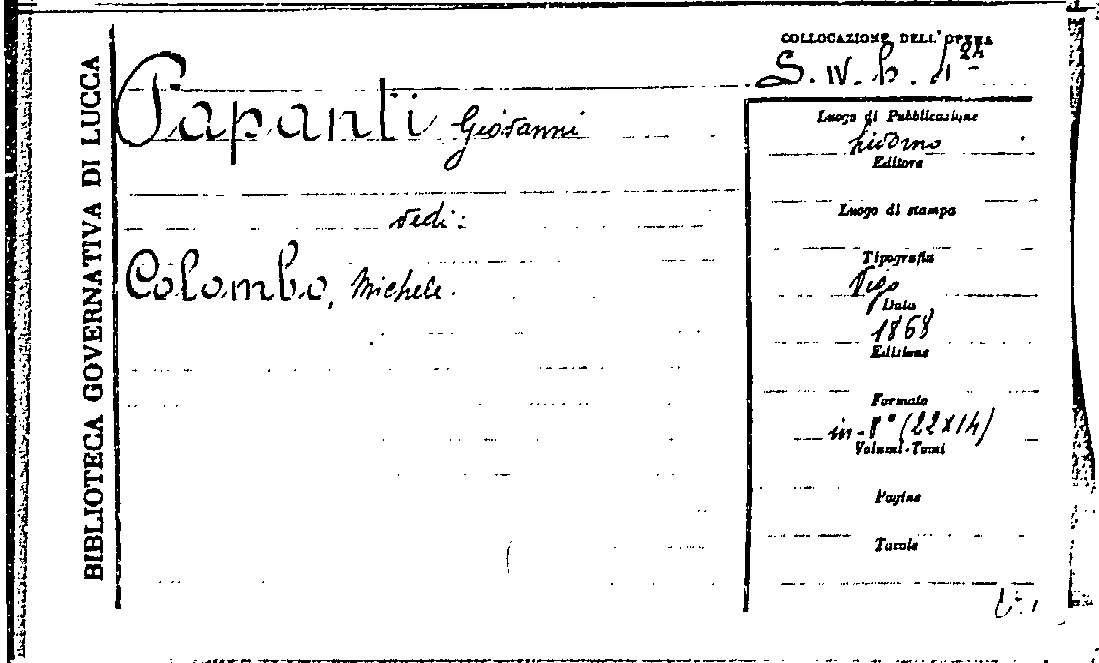 BIBLIOTECA GOVERNATIVA DI LUCCA
Papanti Giovanni
vedi:
Colombo, Michele.
COLLOCAZIONE DELL'OPERA
S. IV. b.
Luogo di Pubblicazione
Livorno
Editore
Luogo di stampa
Tipografia
Vigo
Data
1868
Edizione
Formato
in-8° (22x14)
Volumi-Tomi
Pagine
Tavole